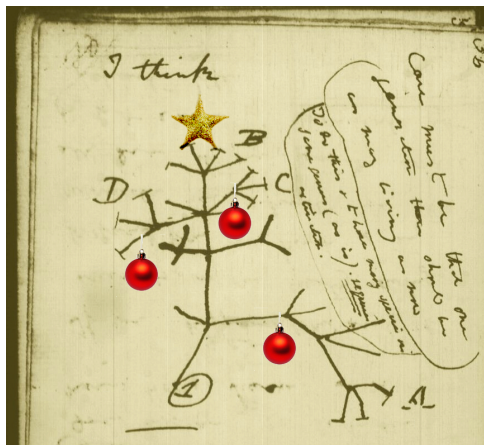 I think
B
D
C
1
A
36
Case must be that one
generation then should be
as many living as now
To do this & to have many species in
same genus (as is). requires
extinction.